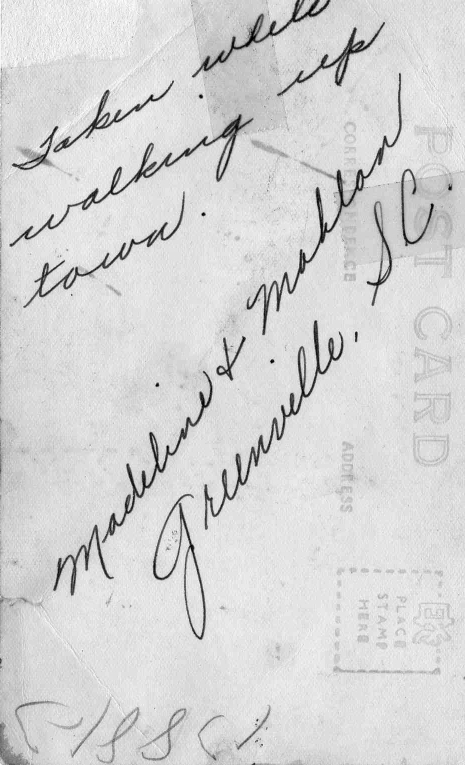 Taken while
walking up
town.
Madeline & Mahlon
Greenville, SC.
POST CARD
CORRESPONDENCE
ADDRESS
PLACE
STAMP
HERE